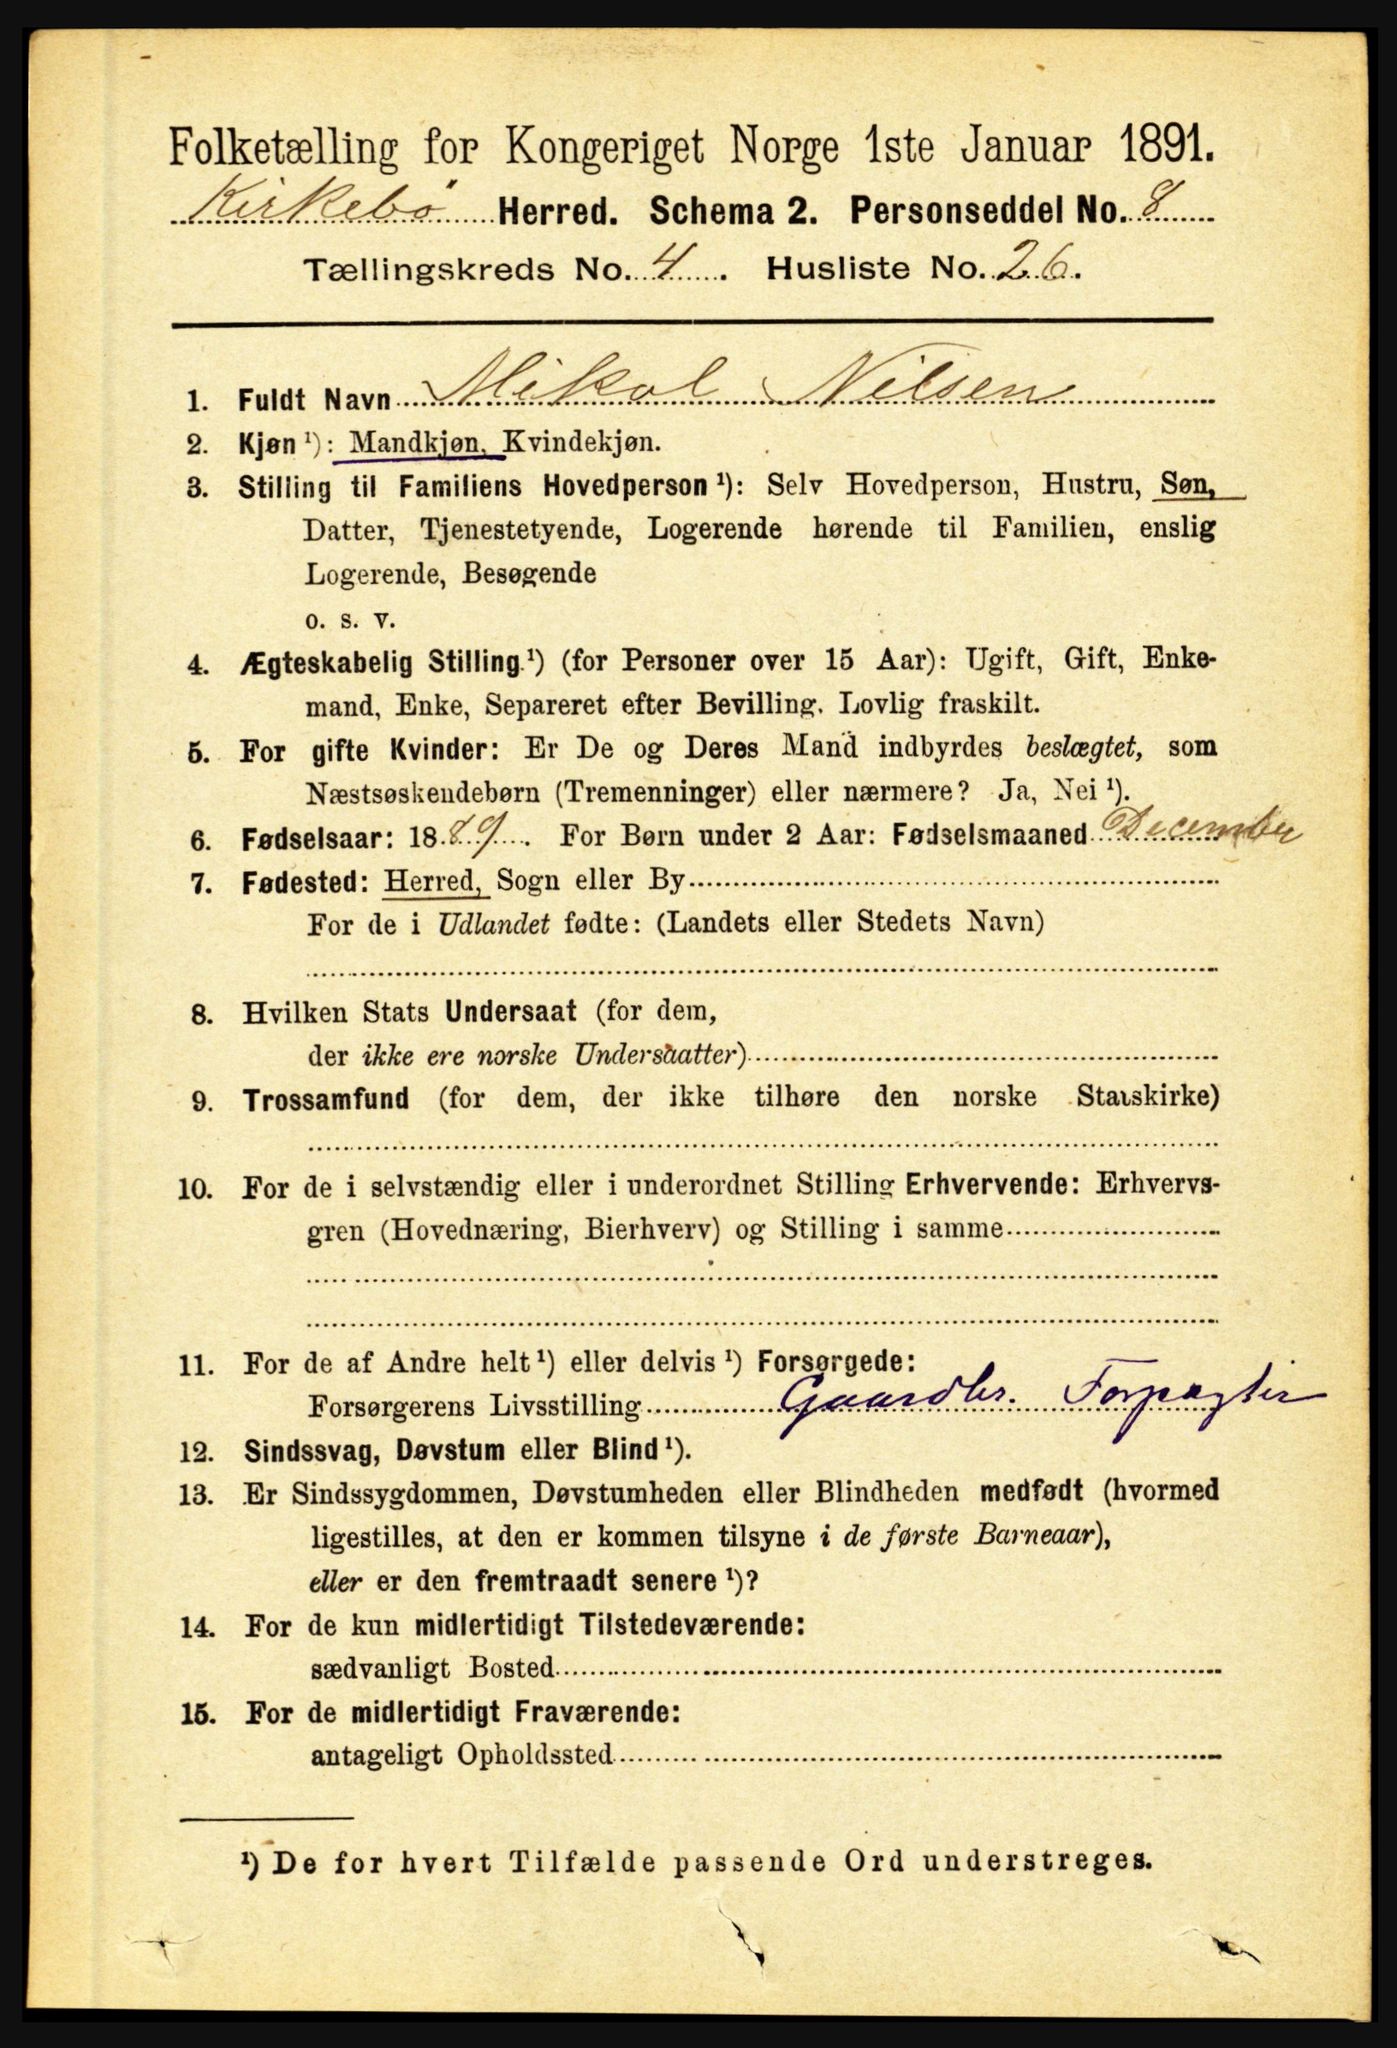 Folketælling for Kongeriget Norge 1ste Januar 1891.
Kirkebö Herred. Schema 2. Personseddel No. 8
Tællingskreds No. 4. Husliste No. 26.
1. Fuldt Navn Mikal Nilsen
2. Kjøn ¹): Mandkjøn, Kvindekjøn.
3. Stilling til Familiens Hovedperson ¹): Selv Hovedperson, Hustru, Søn,
Datter, Tjenestetyende, Logerende hørende til Familien, enslig
Logerende, Besøgende
o. s. v.
4. Ægteskabelig Stilling ¹) (for Personer over 15 Aar): Ugift, Gift, Enke-
mand, Enke, Separeret efter Bevilling. Lovlig fraskilt.
5. For gifte Kvinder: Er De og Deres Mand indbyrdes beslægtet, som
Næstsøskendebørn (Tremenninger) eller nærmere? Ja, Nei ¹).
6. Fødselsaar: 1889. For Børn under 2 Aar: Fødselsmaaned December
7. Fødested: Herred, Sogn eller By
For de i Udlandet fødte: (Landets eller Stedets Navn)
8. Hvilken Stats Undersaat (for dem,
der ikke ere norske Undersaatter)
9. Trossamfund (for dem, der ikke tilhøre den norske Statskirke)
10. For de i selvstændig eller i underordnet Stilling Erhvervende: Erhvervs-
gren (Hovednæring, Bierhverv) og Stilling i samme
11. For de af Andre helt ¹) eller delvis ¹) Forsørgede:
Forsørgerens Livsstilling Gaardbr. Forpagter
12. Sindssvag, Døvstum eller Blind ¹).
13. Er Sindssygdommen, Døvstumheden eller Blindheden medfødt (hvormed
ligestilles, at den er kommen tilsyne i de første Barneaar),
eller er den fremtraadt senere ¹)?
14. For de kun midlertidigt Tilstedeværende:
sædvanligt Bosted
15. For de midlertidigt Fraværende:
antageligt Opholdssted
¹) De for hvert Tilfælde passende Ord understreges.